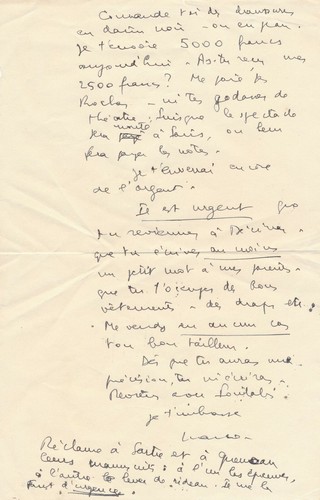 Commande toi des chaussures
en daim noir - ou en peau.
Je t'envoie 5000 francs
aujourd'hui - As-tu reçu mes
2500 francs ? Ne paie pas
Rochas - ni tes godasses de
théâtre : puisque le spectacle
sera monté à Paris, on leur
fera payer les notes.
Je t'enverrai encore
de l'argent.
Il est urgent que
tu reviennes à
que tu écrives au moins
un petit mot à mes parents -
que tu t'occupes de tous
vêtements - des draps etc.
Ne vends en aucun cas
ton bon tailleur.
Dès que tu auras une
précision, tu m'écriras -
je t'embrasse
Réclame à Sartre et à Queneau
leurs manuscrits : à l'un les épreuves,
à l'autre le lever de rideau. Il me les
faut d'urgence.